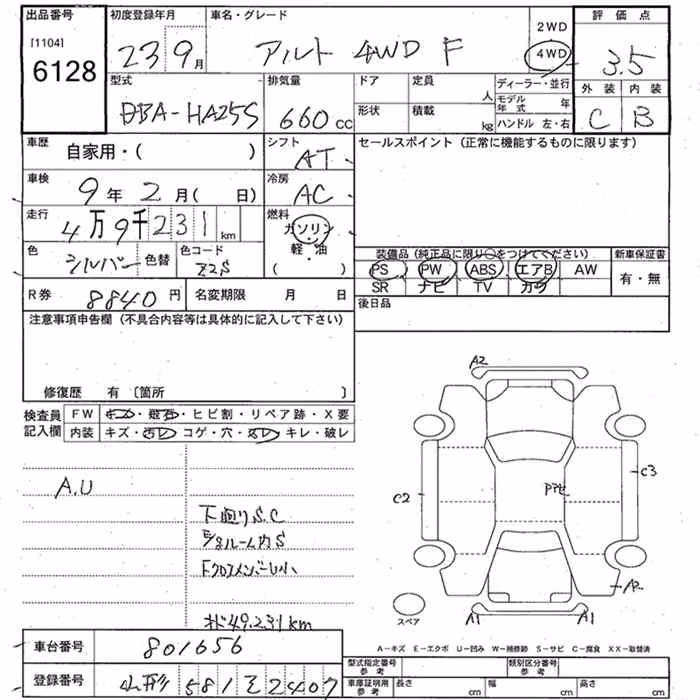 出品番号 初度登録年月 車名・グレード 2WD 評価点
[1104] 23 9月 アルト 4WD F 4WD 3.5
6128
型式 排気量 ドア 定員 人 ディーラー・並行 外装 内装
DBA-HA25S 660cc 形状 積載 kg モデル年式 年 C B
ハンドル 左・右
車歴 自家用・( ) シフト AT セールスポイント (正常に機能するものに限ります)
車検 9年 2月( 日) 冷房 AC
走行 4万9千231km 燃料 ガソリン
軽・油
( )
色 シルバー 色替 色コード Z2S
装備品 (純正品に限り○をつけてください) 新車保証書
PS PW ABS エアB AW 有・無
SR ナビ TV カワ
R券 8840円 名変期限 月 日 後日品
注意事項申告欄 (不具合内容等は具体的に記入して下さい)
修復歴 有 〔箇所 〕
検査員 FW キズ・・ヒビ割・リペア跡・X要
記入欄 内装 キズ・汚レ・コゲ・穴・・キレ・破レ
A2
C3
A.U C2
下廻りS.C
ルーム内S
FクロスメンバーU小
A2
メーター49.231km
スペア A1 A1
A-キズ E-エクボ U-凹み W-補修跡 S-サビ C-腐食 XX-取替済
車台番号 801656
型式指定番号 参考 類別区分番号 参考
登録番号 山形 581 2407
車庫証明用 参考 長さ cm 幅 cm 高さ cm